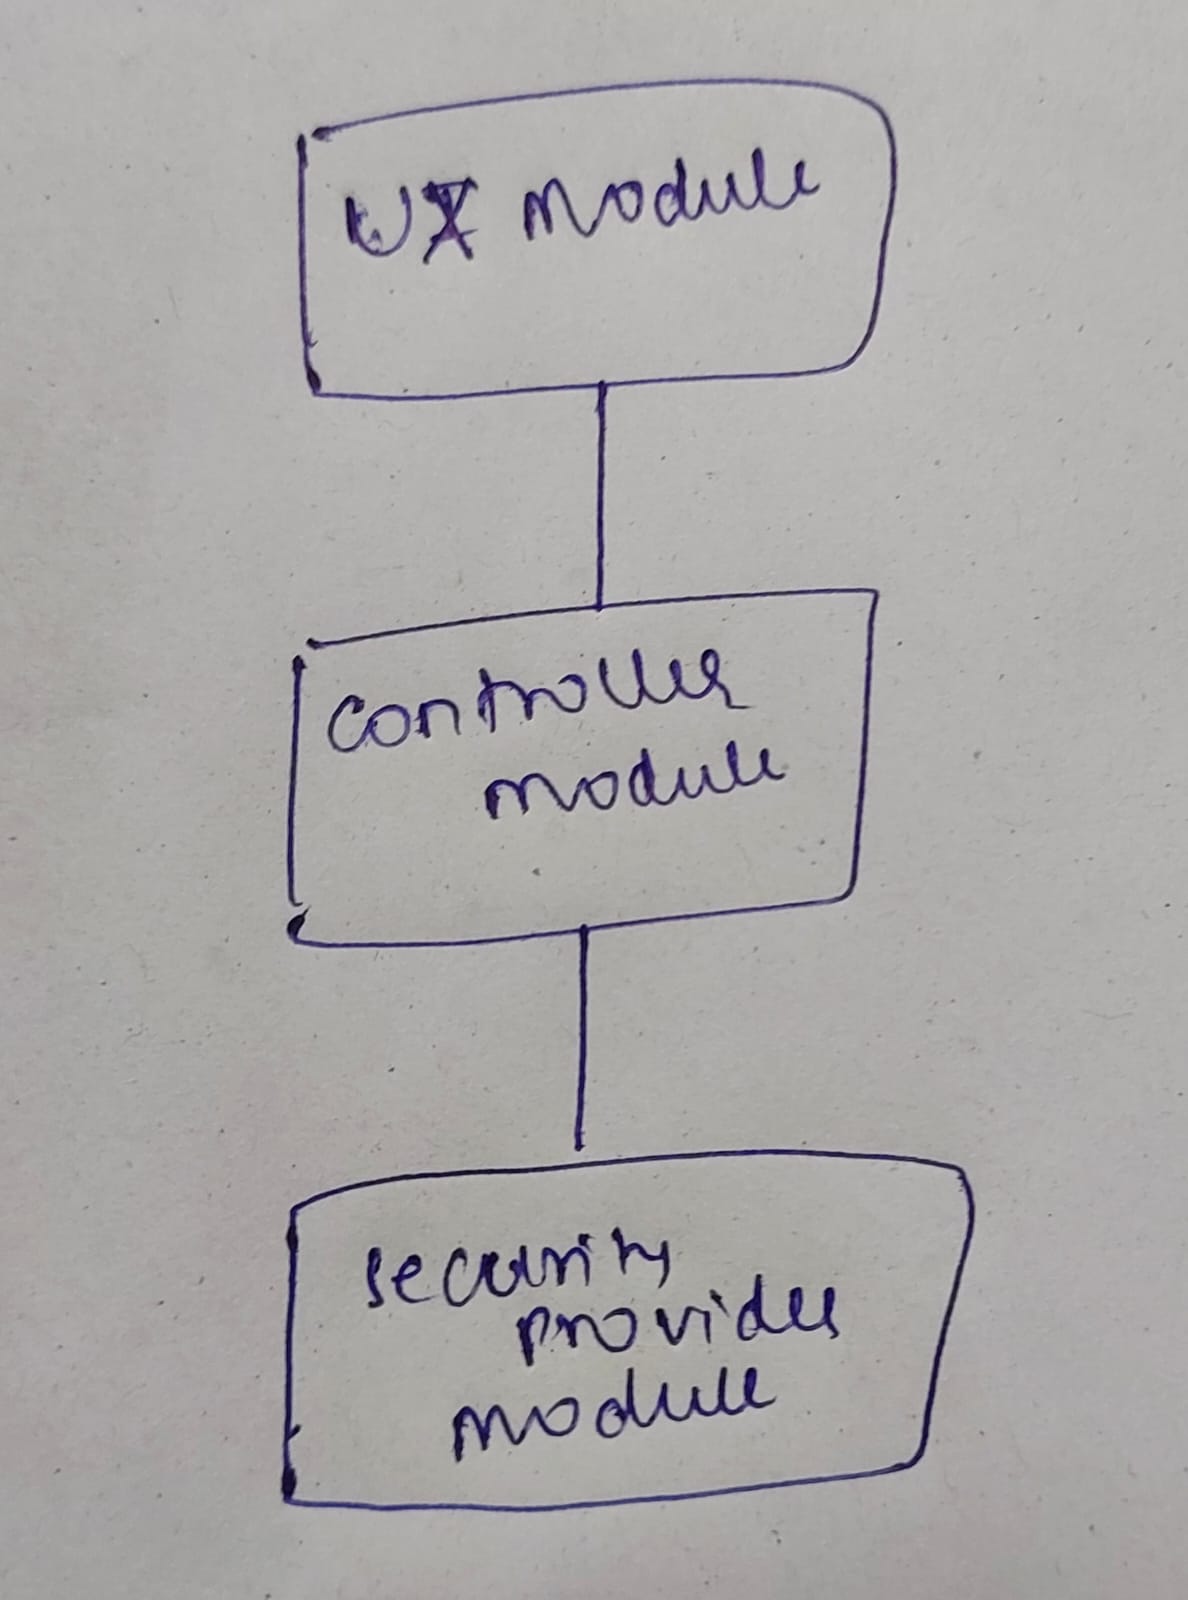 UX module
controller
module
security
provider
module